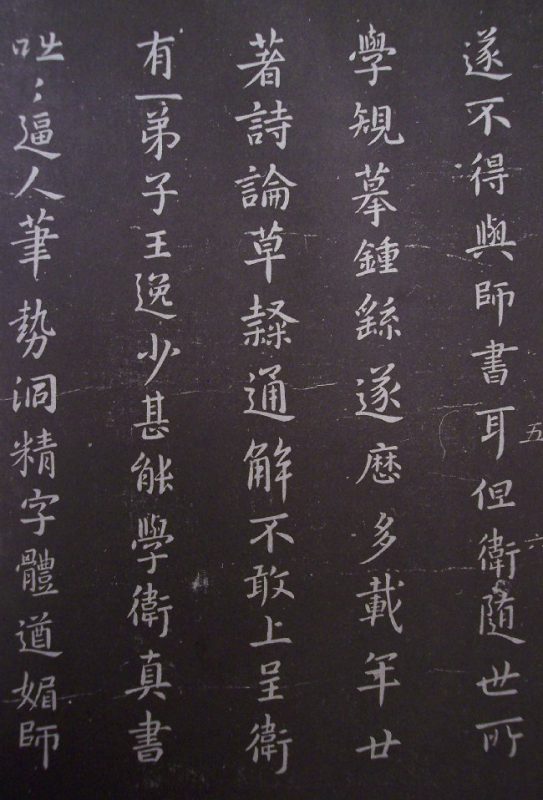 遂不得與師書耳但衛隨世所
學規摹鍾繇遂歷多載年廿
著詩論草隸通解不敢上呈衛
有一弟子王逸少甚能學衛真書
咄〻逼人筆勢洞精字體遒媚師
五
六